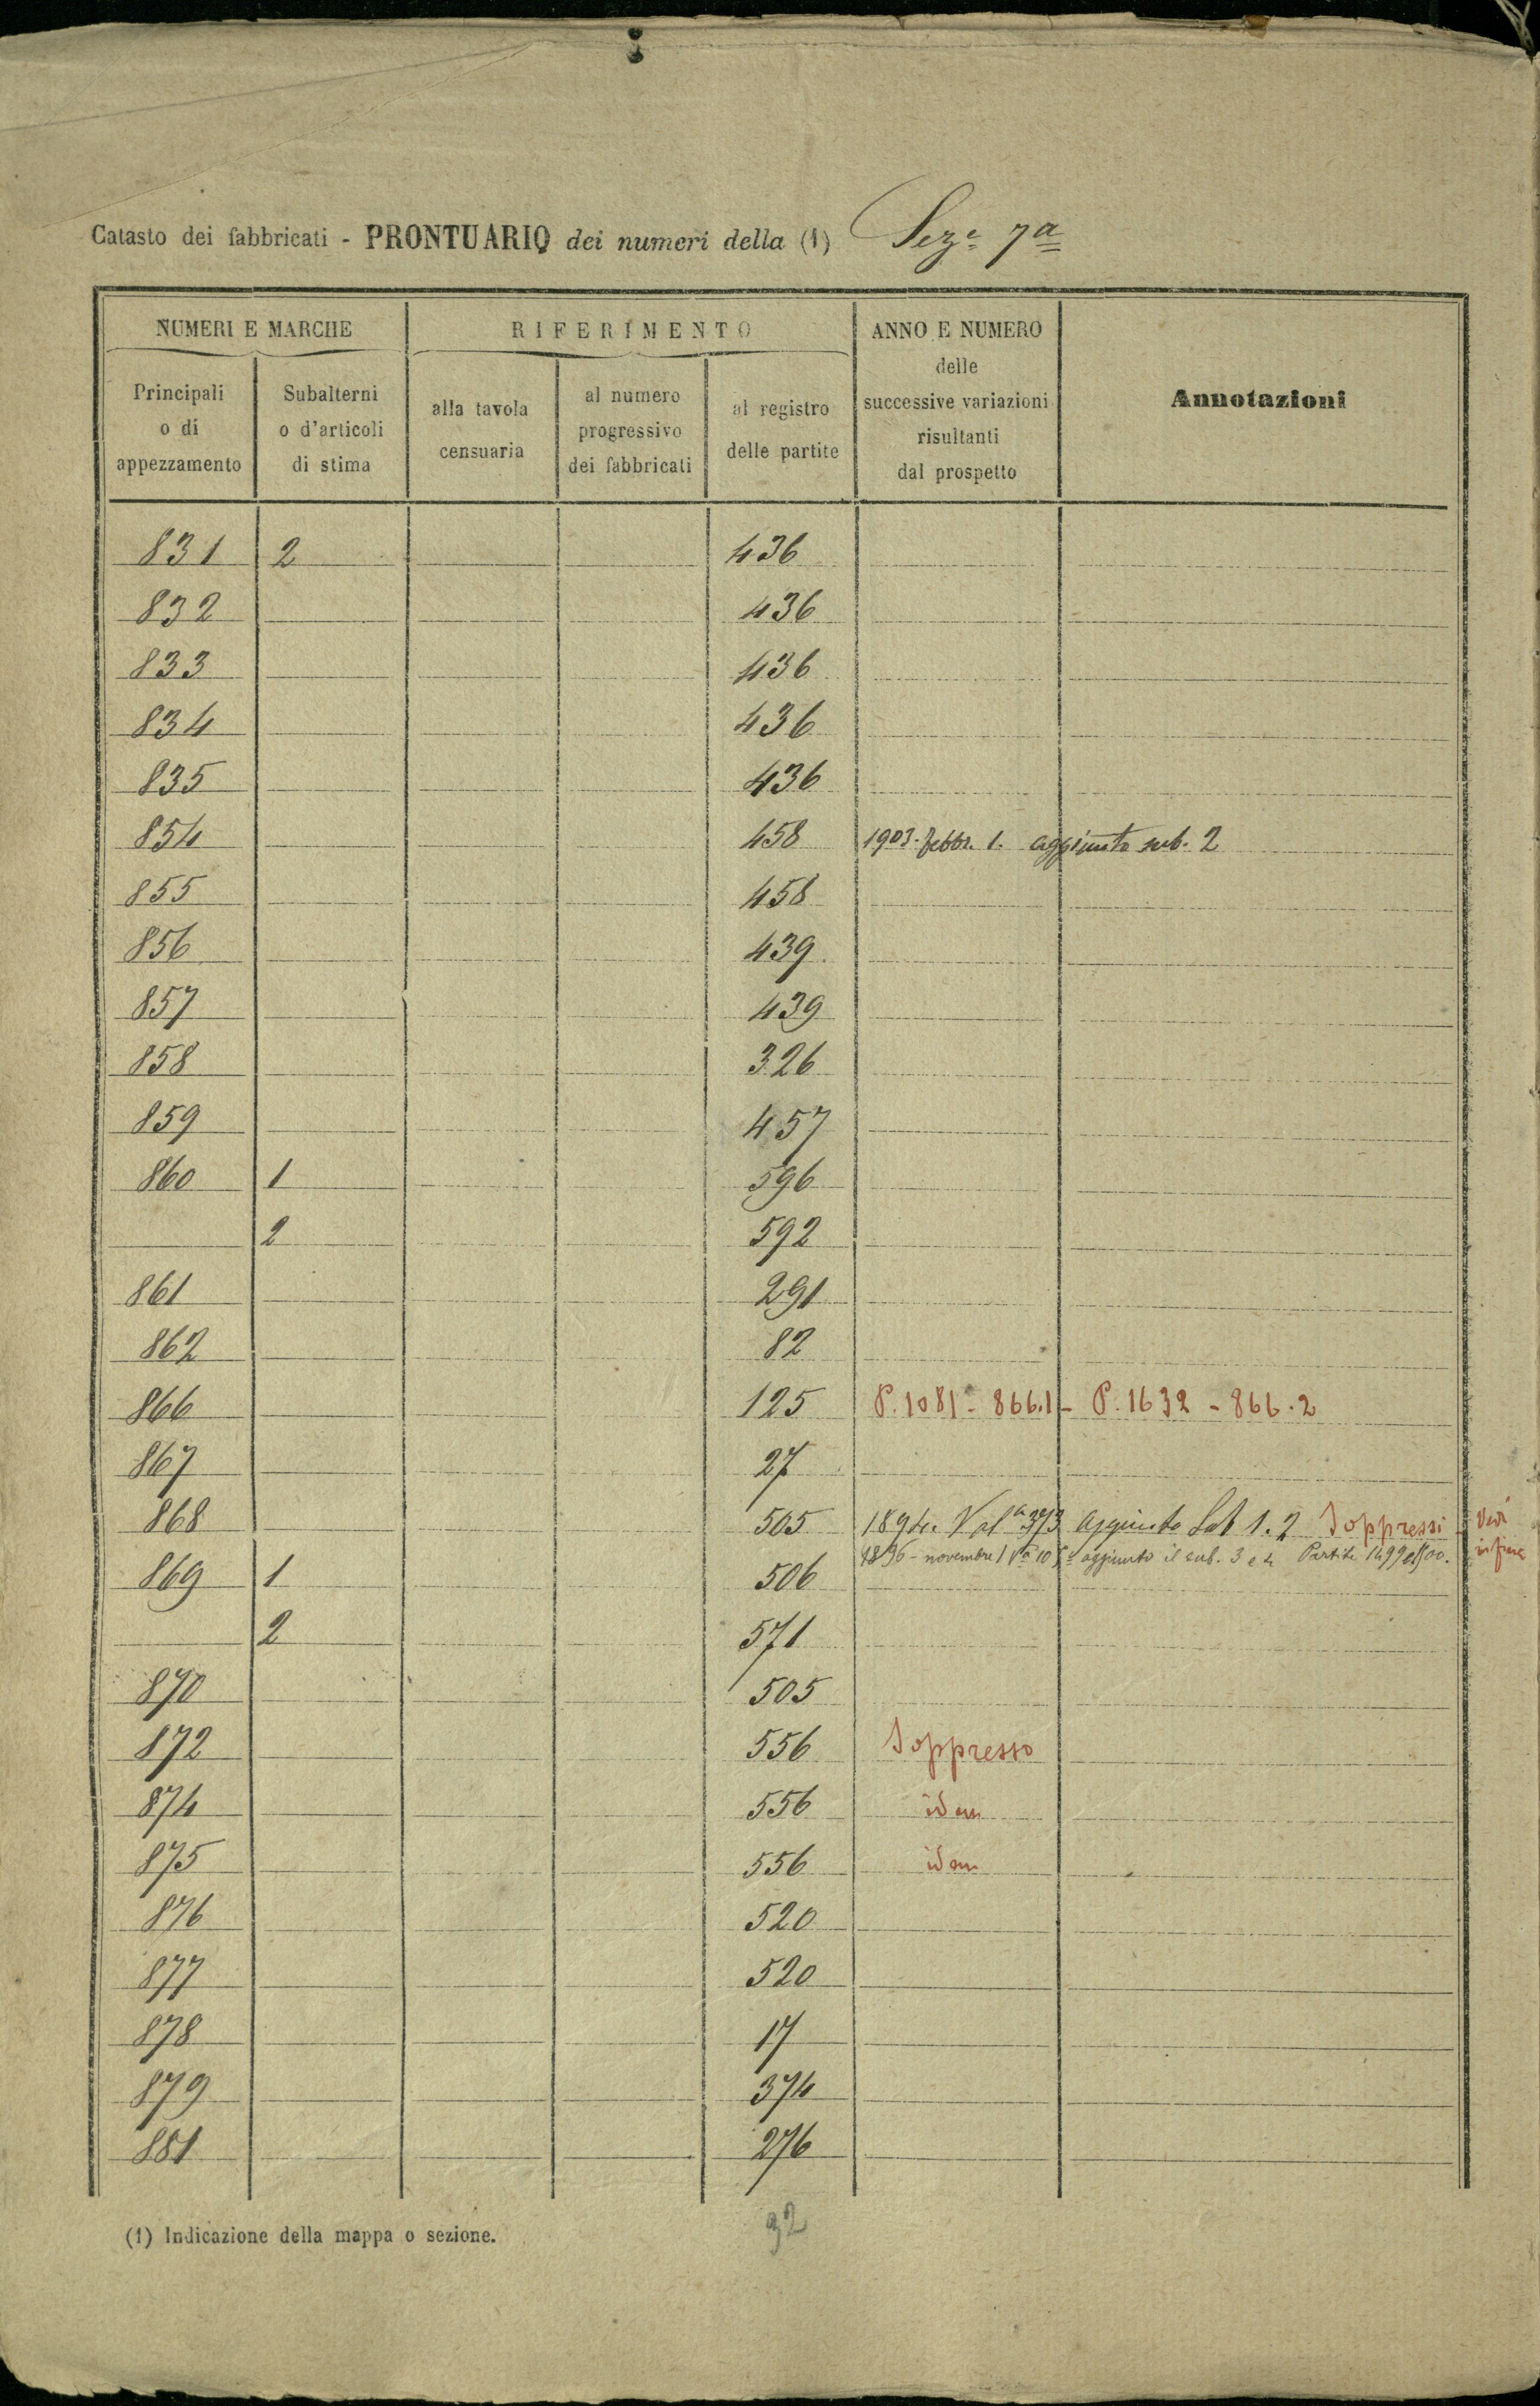 Catasto dei fabbricati - PRONTUARIO dei numeri della (1) Seze 7a
NUMERI E MARCHE
RIFERIMENTO
ANNO E NUMERO
delle
successive variazioni
risultanti
dal prospetto
Annotazioni
Principali
o di
appezzamento
Subalterni
o d'articoli
di stima
alla tavola
censuaria
al numero
progressivo
dei fabbricati
al registro
delle partite
831 2 436
832 436
833 436
834 436
835 436
854 458 1903. febbr. 1. aggiunto sub. 2
855 458
856 439
857 439
858 326
859 457
860 1 596
2 592
861 291
862 82
866 125 P. 1081 - 866.1 - P. 1632 - 866.2
867 27
868 505 1894. Vola 373 aggiunto Sub 1.2 Soppressi - Vedi
1896 - novembre 1 aggiunto il sub. 3 e 4 Partite 1499 e 1500. in fine
869 1 506
2 571
870 505
872 556 Soppresso
874 556 idem
875 556 idem
876 520
877 520
878 17
879 374
881 276
(1) Indicazione della mappa o sezione.
32